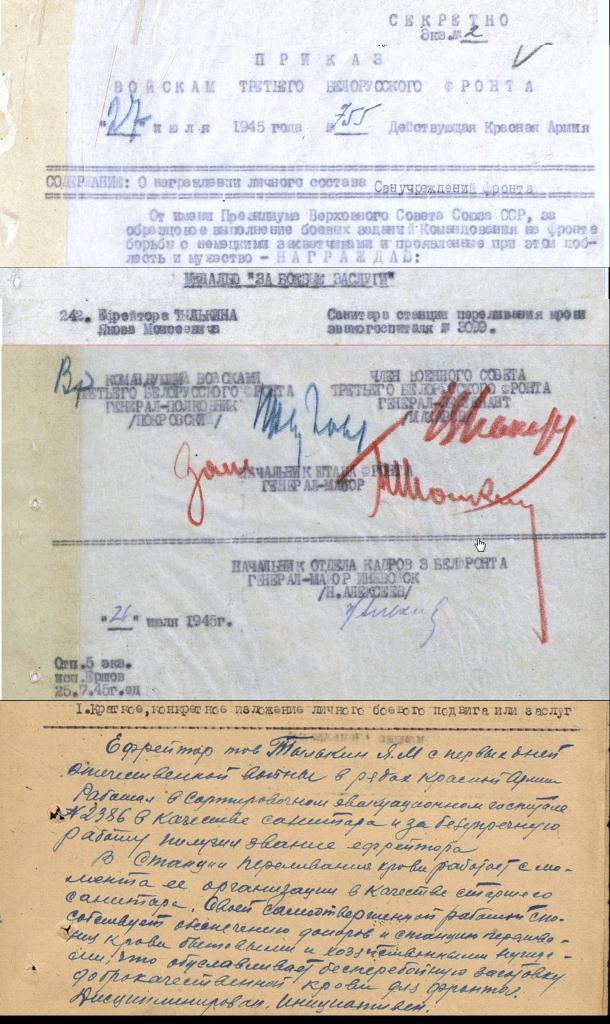 СЕКРЕТНО
Экз.№ 2
ПРИКАЗ
ВОЙСКАМ ТРЕТЬЕГО БЕЛОРУССКОГО ФРОНТА
"27" июля 1945 года № 755 Действующая Красная Армия
СОДЕРЖАНИЕ: О награждении личного состава Санучреждений фронта
От имени Президиума Верховного Совета Союза ССР, за
образцовое выполнение боевых заданий Командования на фронте
борьбы с немецкими захватчиками и проявленные при этом доб-
лесть и мужество - НАГРАЖДАЮ:
МЕДАЛЬЮ "ЗА БОЕВЫЕ ЗАСЛУГИ"
242. Ефрейтора ТЫЛЬКИНА Санитара станции переливания крови
Якова Моисеевича эвакогоспиталя № 3099.
Вр КОМАНДУЮЩИЙ ВОЙСКАМИ ЧЛЕН ВОЕННОГО СОВЕТА
ТРЕТЬЕГО БЕЛОРУССКОГО ФРОНТА ТРЕТЬЕГО БЕЛОРУССКОГО ФРОНТА
ГЕНЕРАЛ-ПОЛКОВНИК ГЕНЕРАЛ-ЛЕЙТЕНАНТ
/ПОКРОВСКИЙ/
НАЧАЛЬНИК ШТАБА ФРОНТА
ГЕНЕРАЛ-МАЙОР
НАЧАЛЬНИК ОТДЕЛА КАДРОВ 3 БЕЛФРОНТА
ГЕНЕРАЛ-МАЙОР ИНЖВОЙСК
/Н.АЛЕКСЕЕВ/
"26" июля 1945г.
Отп.5 экз.
исп.Ершов
25.7.45г.ед
1.Краткое,конкретное изложение личного боевого подвига или заслуг
Ефрейтор тов Тылькин Я.М с первых дней
отечественной войны в рядах красной Армии
Работал в Сортировочном эвакуационном госпитале
№2386 в качестве санитара и за безупречную
работу получил звание ефрейтора
В Станции переливания крови работает с мо-
мента ее организации в качестве старшего
санитара. Своей самоотверженной работой спо-
собствует обеспечению доноров и станцию перелива-
ния крови бытовыми и хозяйственными нужда-
ми, что обуславливает бесперебойную заготовку
доброкачественной крови для фронта.
Дисциплинирован. Инициативен.